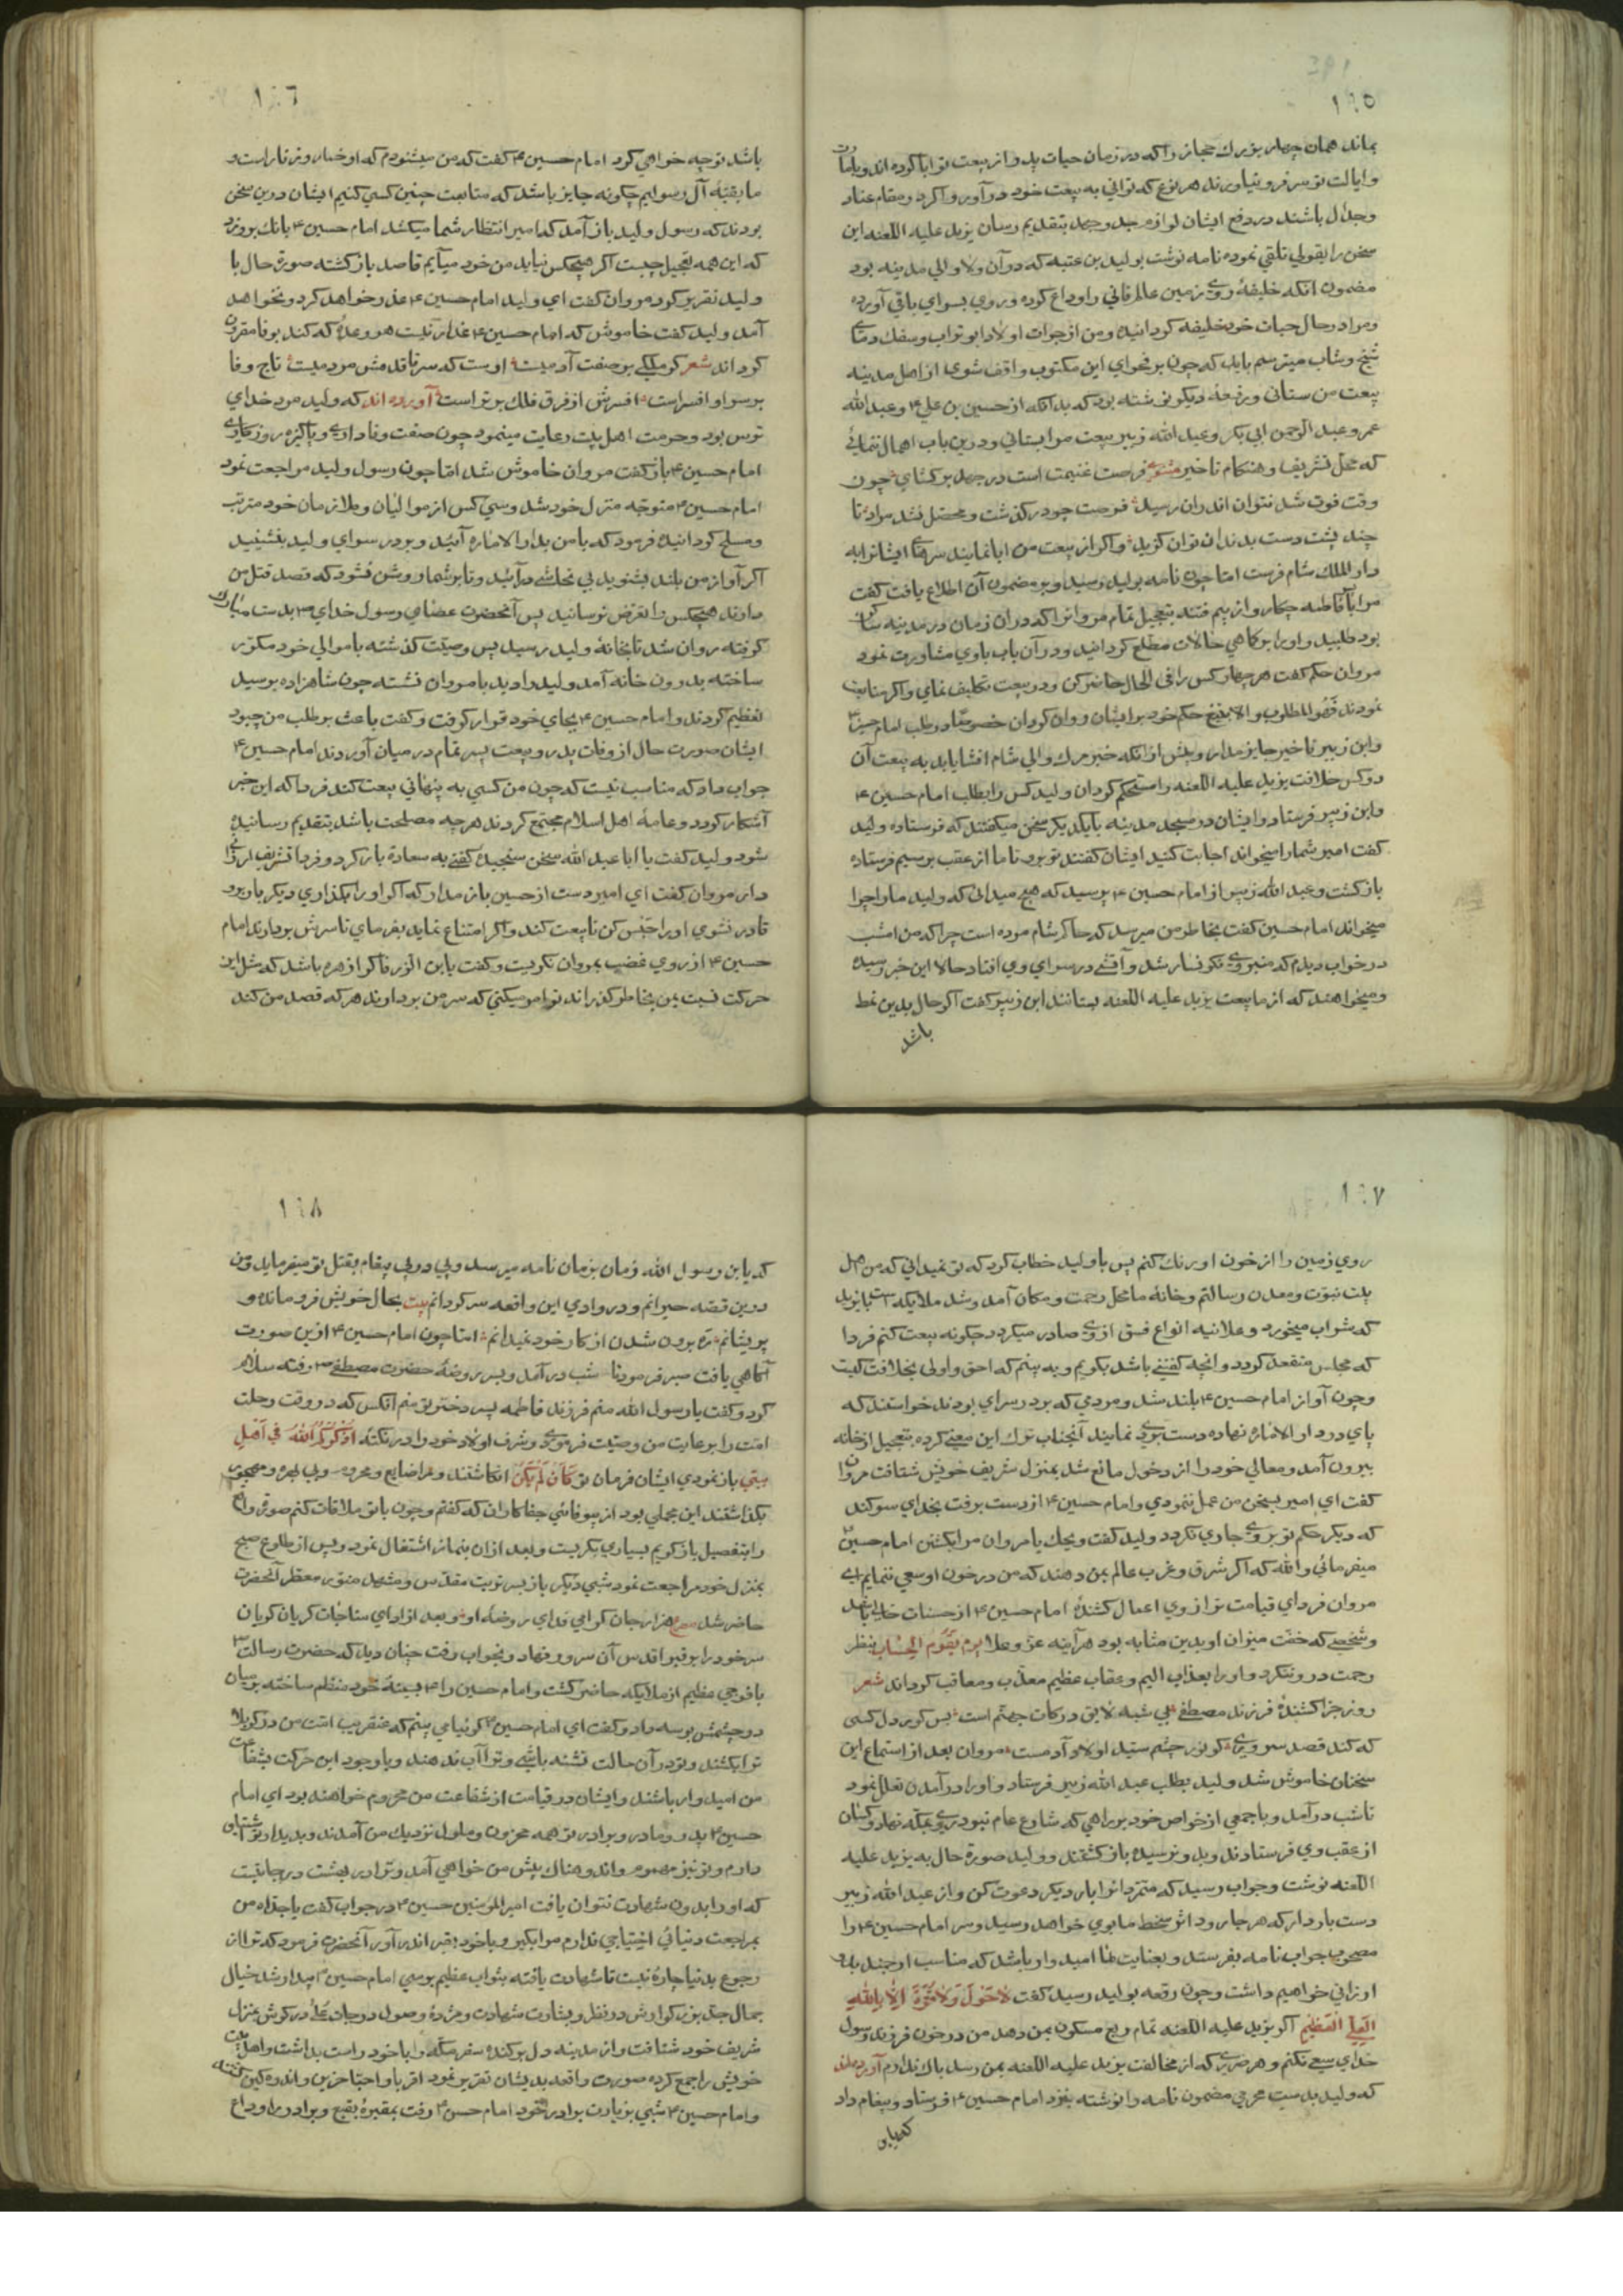 ١٤٥
بماند همان چهار بزرك حجاز را كه در زمان حيات پدر از بيعت تو ابا كرده اند و بامارت
و ايالت تو سر فرو نياورند هر نوع كه تواني به بيعت خود در آور و اكر در مقام عناد
و جدال باشند در دفع ايشان لوازم جد و جهد بتقديم رسان يزيد عليه اللعنه اين
سخن را بقبولي تلقي نموده نامه نوشت بوليد بن عتبه كه در آن ولا والي مدينه بود
مضمون انكه خليفهٔ روي زمين عالم فاني را وداع كرده و روي بسراي باقي آورده
و مرا در حال حيات خود خليفه كردانيده و من از جرات اولاد ابو تراب و سفك دماي
شيخ و شاب ميترسم بايد كه چون بر فحواي اين مكتوب واقف شوي از اهل مدينه
بيعت من ستاني و رقعهٔ ديكر نوشته بود كه بدانكه از حسين بن علي ع و عبد الله
عمر و عبد الرحمن ابي بكر و عبد الله زبير بيعت مرا بستاني و درين باب اهمال ننمائي
كه محل تشريف و هنكام تاخير فرصت غنيمت است در جهد بركشاي چون
وقت فوت شد نتوان اندران رسيد فرصت چو دركذشت و محصل نشد مراد تا
چند پشت دست بدندان توان كزيد و اكر از بيعت من ابا نمايند سرهاي ايشانرا به
دار الملك شام فرست امّا چون نامه بوليد رسيد و بر مضمون آن اطلاع يافت كفت
مرا با فاطمه چكار و از بيم فتنه بتعجيل تمام مروانرا كه دران زمان در مدينه ساكن
بود طلبيد و او را بر كاهي حالات مطلع كردانيد و در آن باب با وي مشاورت نمود
مروان حكم كفت هر چهار كس را في الحال حاضر كن و در بيعت تكليف نماي و اكر متابعت
نمودند فهو المطلوب و الا بتيغ حكم خود بر ايشان روان كردان خصوصًا در طلب امام حسين ع
و ابن زبير تاخير جايز مدار و پيش از انكه خبر مرك والي شام افشا يابد به بيعت آن
دو كس خلافت يزيد عليه اللعنه را مستحكم كردان وليد كس را بطلب امام حسين ع
و ابن زبير فرستاد و ايشان در مسجد مدينه با يكديكر سخن ميكفتند كه فرستاده وليد
كفت امير شما را ميخواند اجابت كنيد ايشان كفتند تو برو تا ما از عقب برسيم فرستاده
باز كشت و عبد الله زبير از امام حسين ع پرسيد كه هيچ ميداني كه وليد ما را چرا
ميخواند امام حسين كفت بخاطر من ميرسد كه حاكم شام مرده است چرا كه من امشب
در خواب ديدم كه منبر وي نكونسار شد و آتشي در سراي وي افتاد حالا اين خبر رسيده
و ميخواهند كه از ما بيعت يزيد عليه اللعنه بستانند ابن زبير كفت اكر حال بدين نمط
باشد
١٤٦
باشد توجه خواهي كرد امام حسين ع كفت كه من ميشنودم كه او خمار و زنار است و
ما بقيهٔ آل رسوليم چكونه جايز باشد كه متابعت چنين كسي كنيم ايشان درين سخن
بودند كه رسول وليد باز آمد كه امير انتظار شما ميكشد امام حسين ع بانك بر وي زد
كه اين همه تعجيل چيست اكر هيچكس نيايد من خود ميآيم قاصد باز كشته صورة حال با
وليد تقرير كرد مروان كفت اي وليد امام حسين ع عذر خواهد كرد و نخواهد
آمد وليد كفت خاموش كه امام حسين ع غدار نيست هر وعدهٔ كه كند بوفا مقرون
كرداند شعر كر ملكي بر صفت آدميت اوست كه سر تا قدمش مردميت تاج وفا
بر سر او افسر است افسرش از فرق فلك برتر است آورده اند كه وليد مرد خداي
ترس بود و حرمت اهل بيت رعايت مينمود چون صفت وفاداري و پاكيزه روزكاري
امام حسين ع باز كفت مروان خاموش شد امّا چون رسول وليد مراجعت نمود
امام حسين ع متوجه منزل خود شد و سي كس از مواليان و ملازمان خود مرتب
و مسلح كردانيد فرمود كه با من بدار الاماره آئيد و بر در سراي وليد بنشينيد
اكر آواز من بلند بشنويد بي تحاشي در آئيد و تا بر شما روشن نشود كه قصد قتل من
دارند هيچكس را تعرض نرسانيد پس آنحضرت عصاي رسول خداي ص بدست مبارك
كرفته روان شد تا بخانهٔ وليد رسيد پس وصيّت كذشته با موالي خود مكرّر
ساخته بدرون خانه آمد وليد را ديد با مروان نشسته چون شاهزاده برسيد
تعظيم كردند و امام حسين ع بجاي خود قرار كرفت و كفت باعث بر طلب من چبود
ايشان صورت حال از وفات پدر و بيعت پسر تمام در ميان آوردند امام حسين ع
جواب داد كه مناسب نيست كه چون من كسي به پنهاني بيعت كند فردا كه اين خبر
آشكار كردد و عامهٔ اهل اسلام مجتمع كردند هر چه مصلحت باشد بتقديم رسانيده
شود وليد كفت يا ابا عبد الله سخن سنجيده كفتي به سعادة باز كرد و فردا تشريف ارزاني
دار مروان كفت اي امير دست از حسين باز مدار كه اكر او را بكذاري ديكر بار برو
قادر نشوي او را حبس كن تا بيعت كند و اكر امتناع نمايد بفرماي تا سرش بردارند امام
حسين ع از روي غضب بمروان نكريست و كفت يا بن الزرقا كرا زهره باشد كه مثل اين
حركت نسبت بمن بخاطر كذراند تو امر ميكني كه سر من بردارند هر كه قصد من كند
١٤٧
روي زمين را از خون او رنك كنم پس با وليد خطاب كرد كه تو نميداني كه من اهل
بيت نبوّت و معدن رسالتم و خانهٔ ما محل رحمت و مكان آمد و شد ملايكه است با يزيد
كه شراب ميخورد و علانيه انواع فسق از وي صادر ميكردد چكونه بيعت كنم فردا
كه مجلس منعقد كردد و انچه كفتني باشد بكويم و به بينم كه احق و اولي بخلافت كيست
و چون آواز امام حسين ع بلند شد و مردمي كه بر در سراي بودند خواستند كه
پاي در دار الاماره نهاده دست بردي نمايند آنجناب ترك اين معني كرده بتعجيل از خانه
بيرون آمد و موالي خود را از دخول مانع شد بمنزل شريف خويش شتافت مروان
كفت اي امير بسخن من عمل ننمودي و امام حسين ع از دست برفت بخداي سوكند
كه ديكر حكم تو بر وي جاري نكردد وليد كفت ويحك يا مروان مرا بكشتن امام حسين
ميفرمائي و الله كه اكر شرق و غرب عالم بمن دهند كه من در خون او سعي ننمايم اي
مروان فرداي قيامت ترازوي اعمال كشندهٔ امام حسين ع از حسنات خالي باشد
و شخصي كه خفت ميزان او بدين مثابه بود هر آينه عزّ و علا يوم يقوم الحساب بنظر
رحمت درو ننكرد و او را بعذاب اليم و عقاب عظيم معذّب و معاقب كرداند شعر
روز جزا كشندهٔ فرزند مصطفي بي شبه لايق دركات جهنم است پس كور دل كسي
كه كند قصد سروري كو نور چشم سيّد اولاد آدمست مروان بعد از استماع اين
سخنان خاموش شد وليد بطلب عبد الله زبير فرستاد و او را در آمدن تعلل نمود
تا شب در آمد و با جمعي از خواص خود براهي كه شارع عام نبود روي بمكّه نهاد و كسان
از عقب وي فرستادند و بدو نرسيده باز كشتند و وليد صورة حال به يزيد عليه
اللعنه نوشت و جواب رسيد كه متمردانرا بار ديكر دعوت كن و از عبد الله زبير
دست باز دار كه هر جا رود اثر سخط ما بوي خواهد رسيد و سر امام حسين ع را
مصحوب جواب نامه بفرستد و بعنايت ما اميدوار باشد كه مناسب ارجمند بدو
ارزاني خواهيم داشت و چون رقعه بوليد رسيد كفت لا حَوْلَ وَلا قُوَّةَ اِلّا بِاللّٰهِ
العَلِيّ العَظِيمِ اكر يزيد عليه اللعنه تمام ربع مسكون بمن دهد من در خون فرزند رسول
خداي سعي نكنم و هر ضرري كه از مخالفت يزيد عليه اللعنه بمن رسد باك ندارم آورده اند
كه وليد بدست محرمي مضمون نامه را نوشته بنزد امام حسين ع فرستاد و پيغام داد
كه يابن
١٤٨
كه يا بن رسول الله زمان بزمان نامه ميرسد و پي در پي پيغام بقتل تو ميفرمايد و من
درين قصّه حيرانم و در وادي اين واقعه سركردانم بيت بحال خويش فرو مانده و
پريشانم ره برون شدن از كار خود نميدانم امّا چون امام حسين ع ازين صورت
آكاهي يافت صبر فرمود تا شب در آمد و بسر روضهٔ حضرت مصطفي ص رفته سلام
كرد و كفت يا رسول الله منم فرزند فاطمه پسر دختر تو منم انكس كه در وقت رحلت
امّت را برعايت من وصيّت فرمودي و شرف اولاد خود را در نكته اُذَكِّرُكُمُ اللّٰهَ فِي اَهْلِ
بيتي باز نمودي ايشان فرمان تو كَاَن لَم يَكُن انكاشتند و مرا ضايع و محروم و بي بهره و مهجور
بكذاشتند اين مجملي بود از بيوفائي جفاكاران كه كفتم و چون با تو ملاقات كنم صورة واقعه
را بتفصيل باز كويم بسياري بكريست و بعد ازان بنماز اشتغال نمود و پس از طلوع صبح
بمنزل خود مراجعت نمود شبي ديكر باز بسر تربت مقدّس و مشهد منوّر معطّر آنحضرت
حاضر شد مصرع هزار جان كرامي فداي روضهٔ او و بعد از اداي مناجات كريان كريان
سر خود را بر قبر اقدس آن سرور نهاد و بخواب رفت چنان ديد كه حضرت رسالت ص
با فوجي عظيم از ملايكه حاضر كشت و امام حسين را ع بسينهٔ خود منظم ساخته بر ميان
دو چشمش بوسه داد و كفت اي امام حسين ع كوئيا مي بينم كه عنقريب امّت من در كربلا
ترا بكشند و تو در آن حالت تشنه باشي و ترا آب ندهند و با وجود اين حركت بشفاعت
من اميدوار باشند و ايشان در قيامت از شفاعت من محروم خواهند بود اي امام
حسين ع پدر و مادر و برادر تو همه محزون و ملول نزديك من آمدند و بديدار تو اشتياق
دارم و تو نيز مهموم و اندوهناك پيش من خواهي آمد و ترا در بهشت درجاتيست
كه او را بدون شهادت نتوان يافت امير المومنين حسين ع در جواب كفت يا جداه من
بمراجعت دنيائي احتياجي ندارم مرا بكير و با خود بقبر اندر آور آنحضرت فرمود كه ترا از
رجوع بدنيا چارهٔ نيست تا شهادت يافته بثواب عظيم برسي امام حسين ع بيدار شد خيال
جمال جدّ بزركوارش در نظر و بشارت شهادت و مژدهٔ وصول درجات عُلا در كوش بمنزل
شريف خود شتافت و از مدينه دل بركنده سفر مكّه را با خود راست بداشت و اهل بيت
خويش را جمع كرده صورت واقعه بديشان تقرير نمود اقربا و احبّا حزين و اندوهكين كشته
و امام حسين ع شبي بزيارت برادر خود امام حسن ع رفت بمقبرهٔ بقيع و برادر را وداع